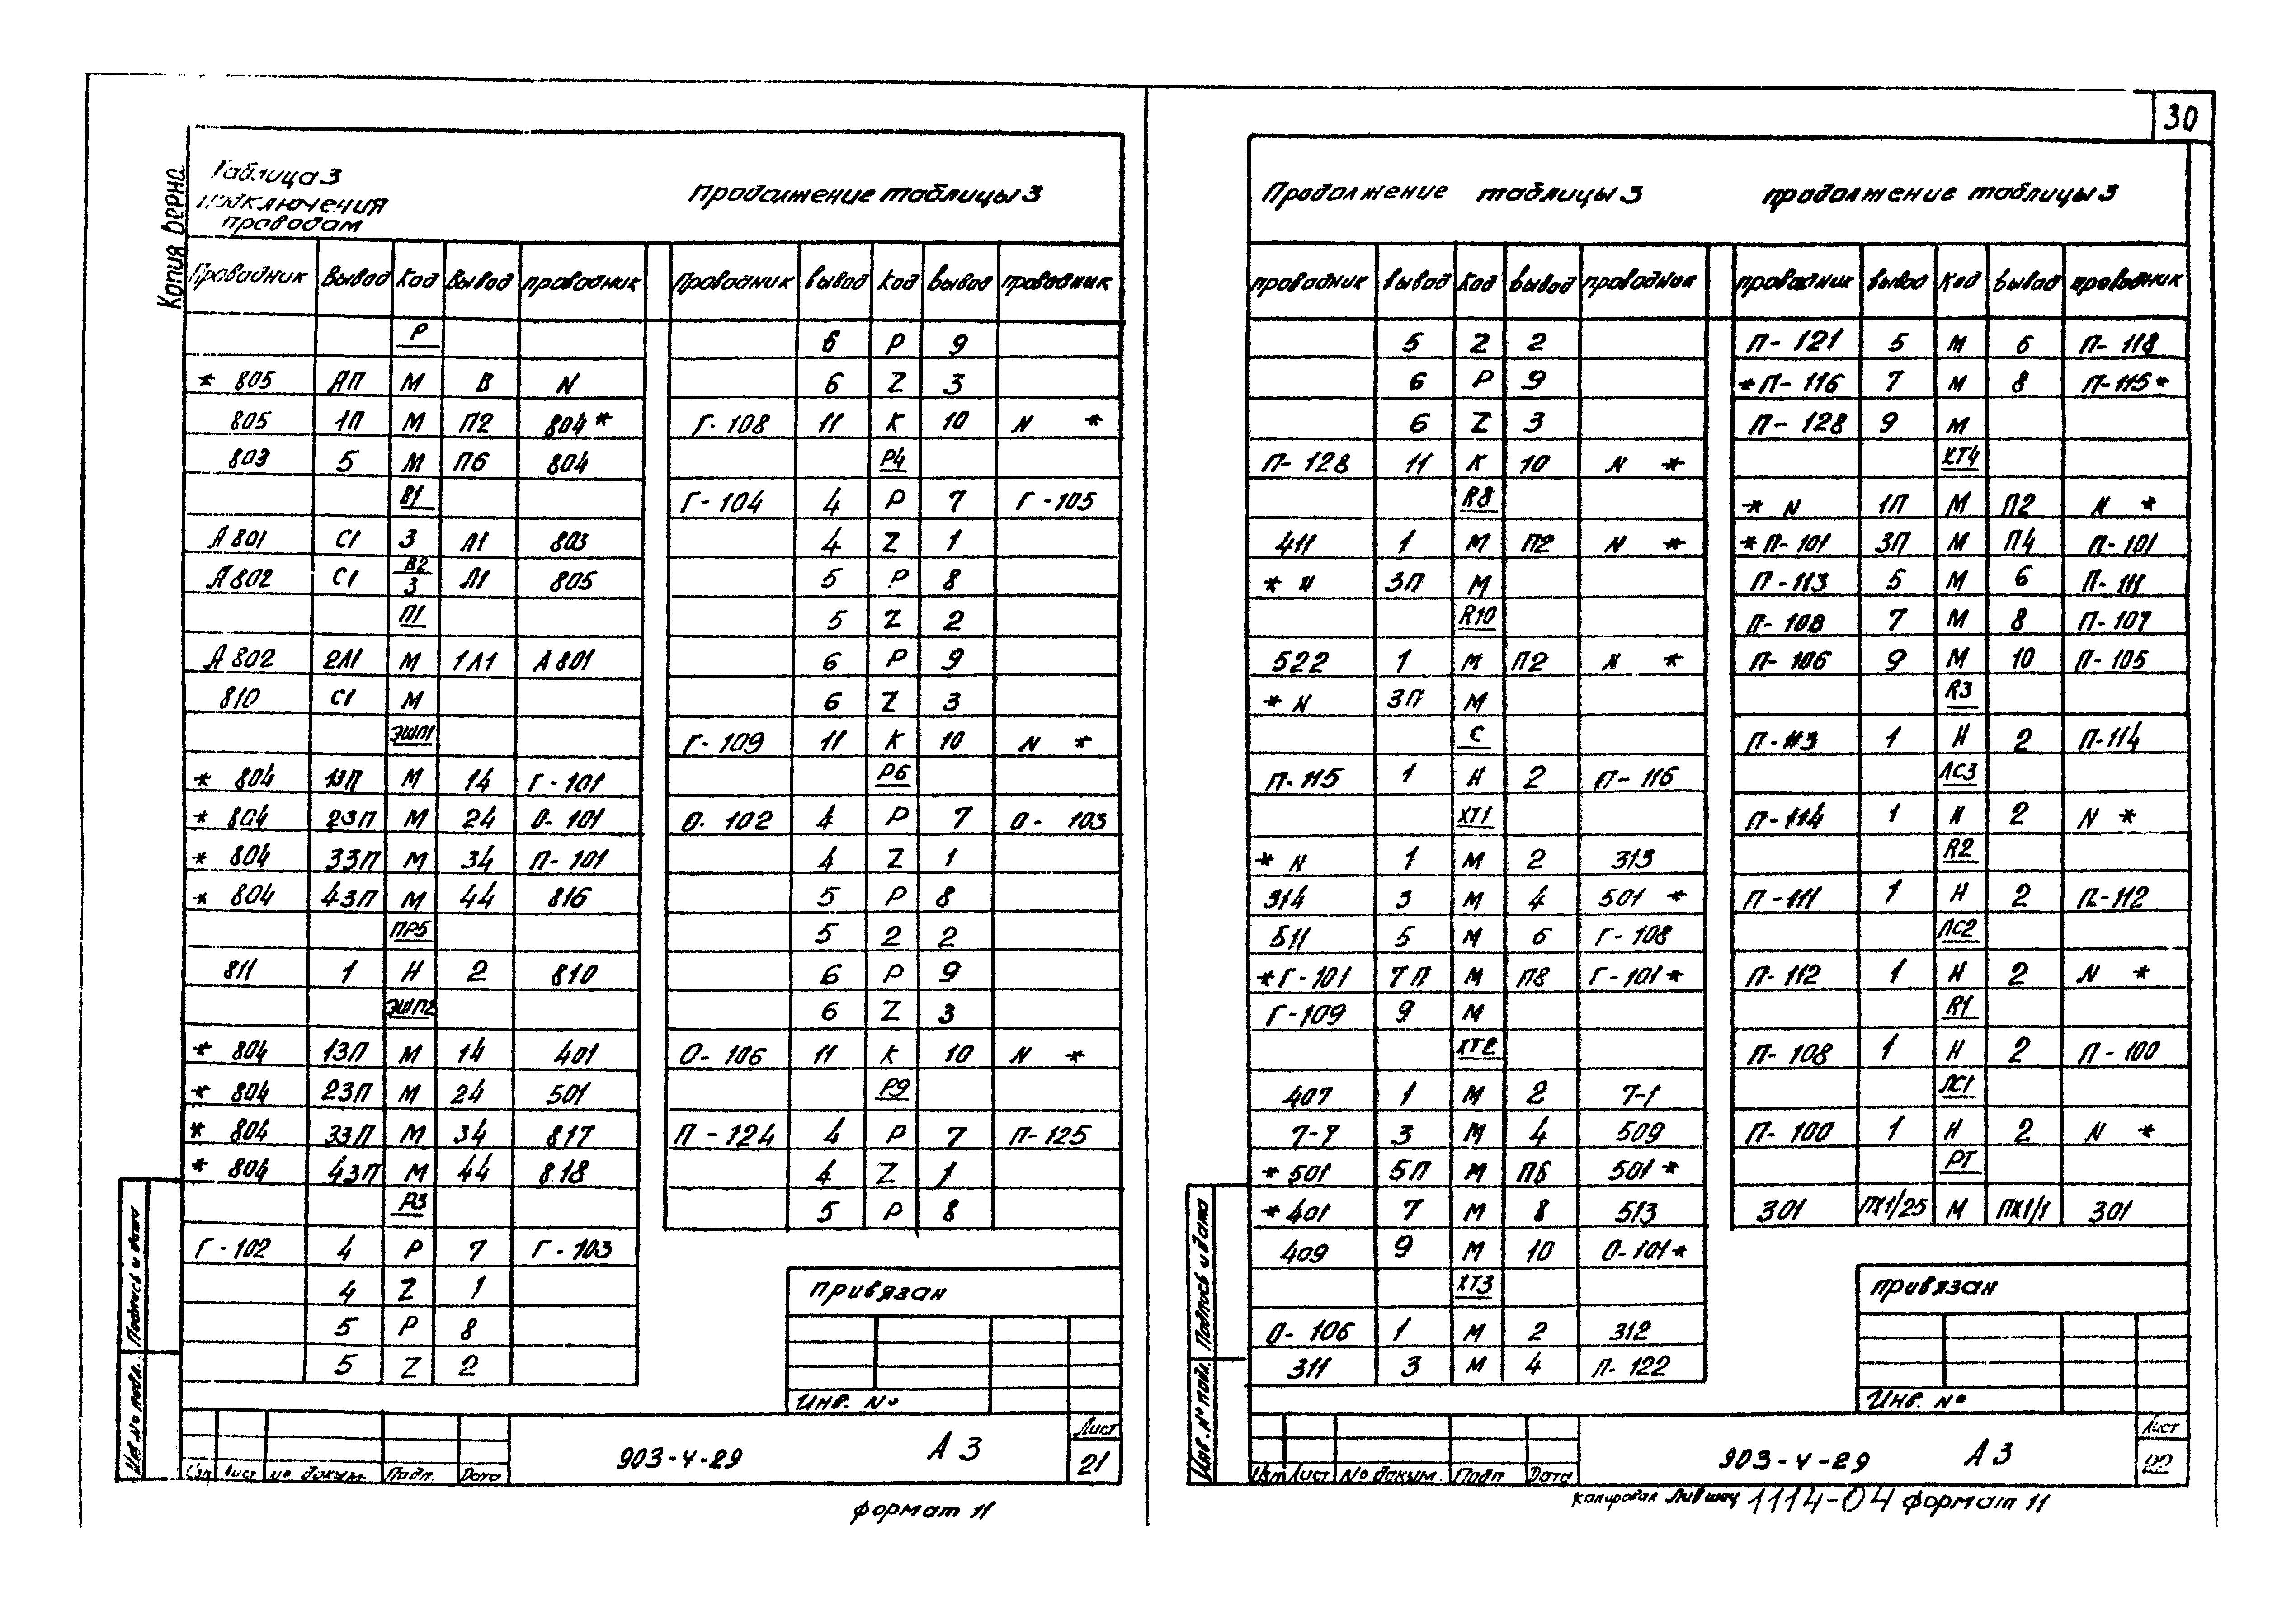 30
Копия верна
Таблица 3
Подключения
проводам
Продолжение таблицы 3
Проводник Вывод Код Вывод проводник
Р
* 805 ЛП М В N
805 1П М П2 804 *
803 5 М П6 804
В1
А 801 С1 З Л1 803
В2
А 802 С1 З Л1 805
П1
А 802 2Л1 М 1Л1 А 801
810 С1 М
ЭШП1
* 804 13П М 14 Г-101
* 804 23П М 24 О-101
* 804 33П М 34 П-101
* 804 43П М 44 816
ПР5
811 1 Н 2 810
ЭШП2
* 804 13П М 14 401
* 804 23П М 24 501
* 804 33П М 34 817
* 804 43П М 44 818
Р3
Г-102 4 Р 7 Г-103
4 Z 1
5 Р 8
5 Z 2
Проводник вывод Код вывод проводник
6 Р 9
6 Z 3
Г-108 11 К 10 N *
Р4
Г-104 4 Р 7 Г-105
4 Z 1
5 Р 8
5 Z 2
6 Р 9
6 Z 3
Г-109 11 К 10 N *
Р6
О-102 4 Р 7 О-103
4 Z 1
5 Р 8
5 2 2
6 Р 9
6 Z 3
О-106 11 К 10 N *
Р9
П-124 4 Р 7 П-125
4 Z 1
5 Р 8
привязан
Инв. №
Подпись и дата
Инв. № подл.
Изм Лист № докум. Подп. Дата
903-4-29 А 3
Лист
21
формат 11
Продолжение таблицы 3
продолжение таблицы 3
проводник вывод Код вывод проводник
5 Z 2
6 Р 9
6 Z 3
П-128 11 К 10 N *
R8
411 1 М П2 N *
* N 3П М
R10
522 1 М П2 N *
* N 3П М
С
П-115 1 Н 2 П-116
ХТ1
* N 1 М 2 313
314 3 М 4 501 *
511 5 М 6 Г-108
* Г-101 7П М П8 Г-101 *
Г-109 9 М
ХТ2
407 1 М 2 7-1
7-7 3 М 4 509
* 501 5П М П6 501 *
* 401 7 М 8 513
409 9 М 10 О-101 *
ХТ3
О-106 1 М 2 312
311 3 М 4 П-122
проводник вывод Код вывод проводник
П-121 5 М 6 П-118
* П-116 7 М 8 П-115 *
П-128 9 М
ХТ4
* N 1П М П2 N *
* П-101 3П М П4 П-101
П-113 5 М 6 П-111
П-108 7 М 8 П-107
П-106 9 М 10 П-105
R3
П-113 1 Н 2 П-114
ЛС3
П-114 1 Н 2 N *
R2
П-111 1 Н 2 П-112
ЛС2
П-112 1 Н 2 N *
R1
П-108 1 Н 2 П-100
ЛС1
П-100 1 Н 2 N *
РТ
301 ПХ1/25 М ПХ1/1 301
привязан
Инв. №
Подпись и дата
Инв. № подл.
Изм Лист № докум. Подп Дата
903-4-29 А 3
Лист
22
копировал 1114-04 формат 11